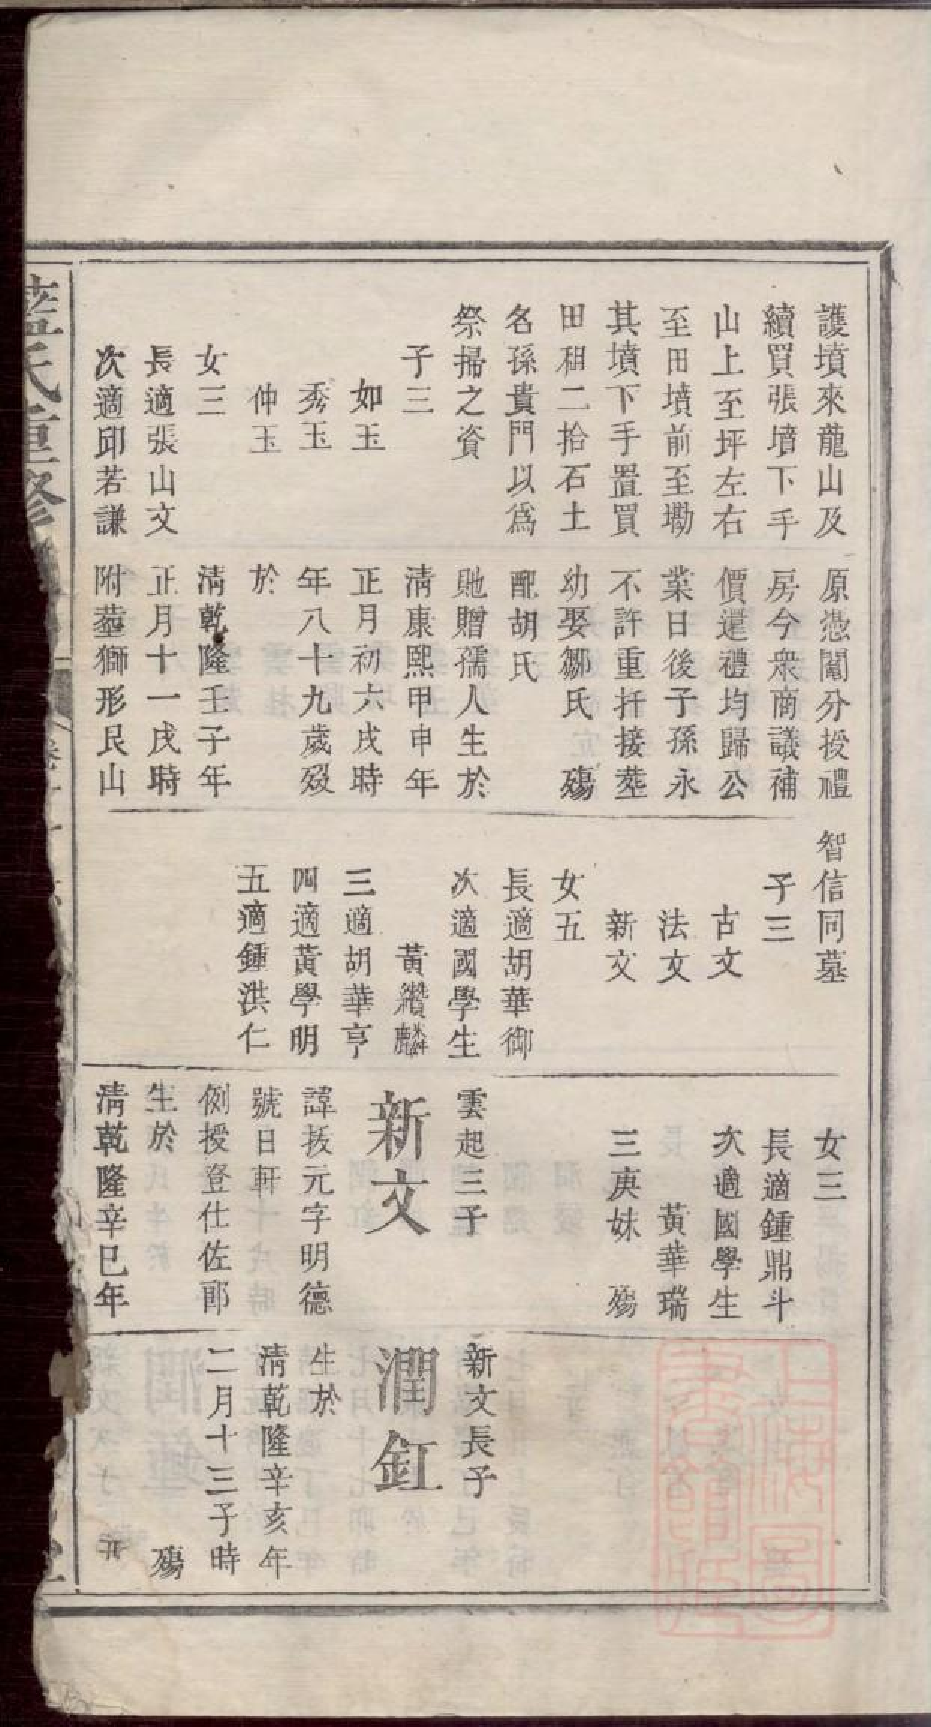 護墳來龍山及
續買張墳下手
山上至坪左右
至田墳前至墈
其墳下手置買
田租二拾石土
名孫貴門以爲
祭掃之資
子三
如玉
秀玉
仲玉
女三
長適張山文
次適邱若謙
原憑鬮分授禮
房今衆商議補
價還禮均歸公
業日後子孫永
不許重扦接塟
幼娶鄒氏 殤
配胡氏
貤贈孺人生於
清康熙甲申年
正月初六戌時
年八十九歲歿
於
清乾隆壬子年
正月十一戌時
附塟獅形艮山
智信同墓
子三
古文
法文
新文
女五
長適胡華御
次適國學生
黃纘麟
三適胡華亨
四適黃學明
五適鍾洪仁
女三
長適鍾鼎斗
次適國學生
黃華瑞
三庚妹 殤
雲起三子
新文
諱拔元字明德
號日軒
例授登仕佐郎
生於
清乾隆辛巳年
新文長子
潤釭
生於
清乾隆辛亥年
二月十三子時
殤
藍氏重修